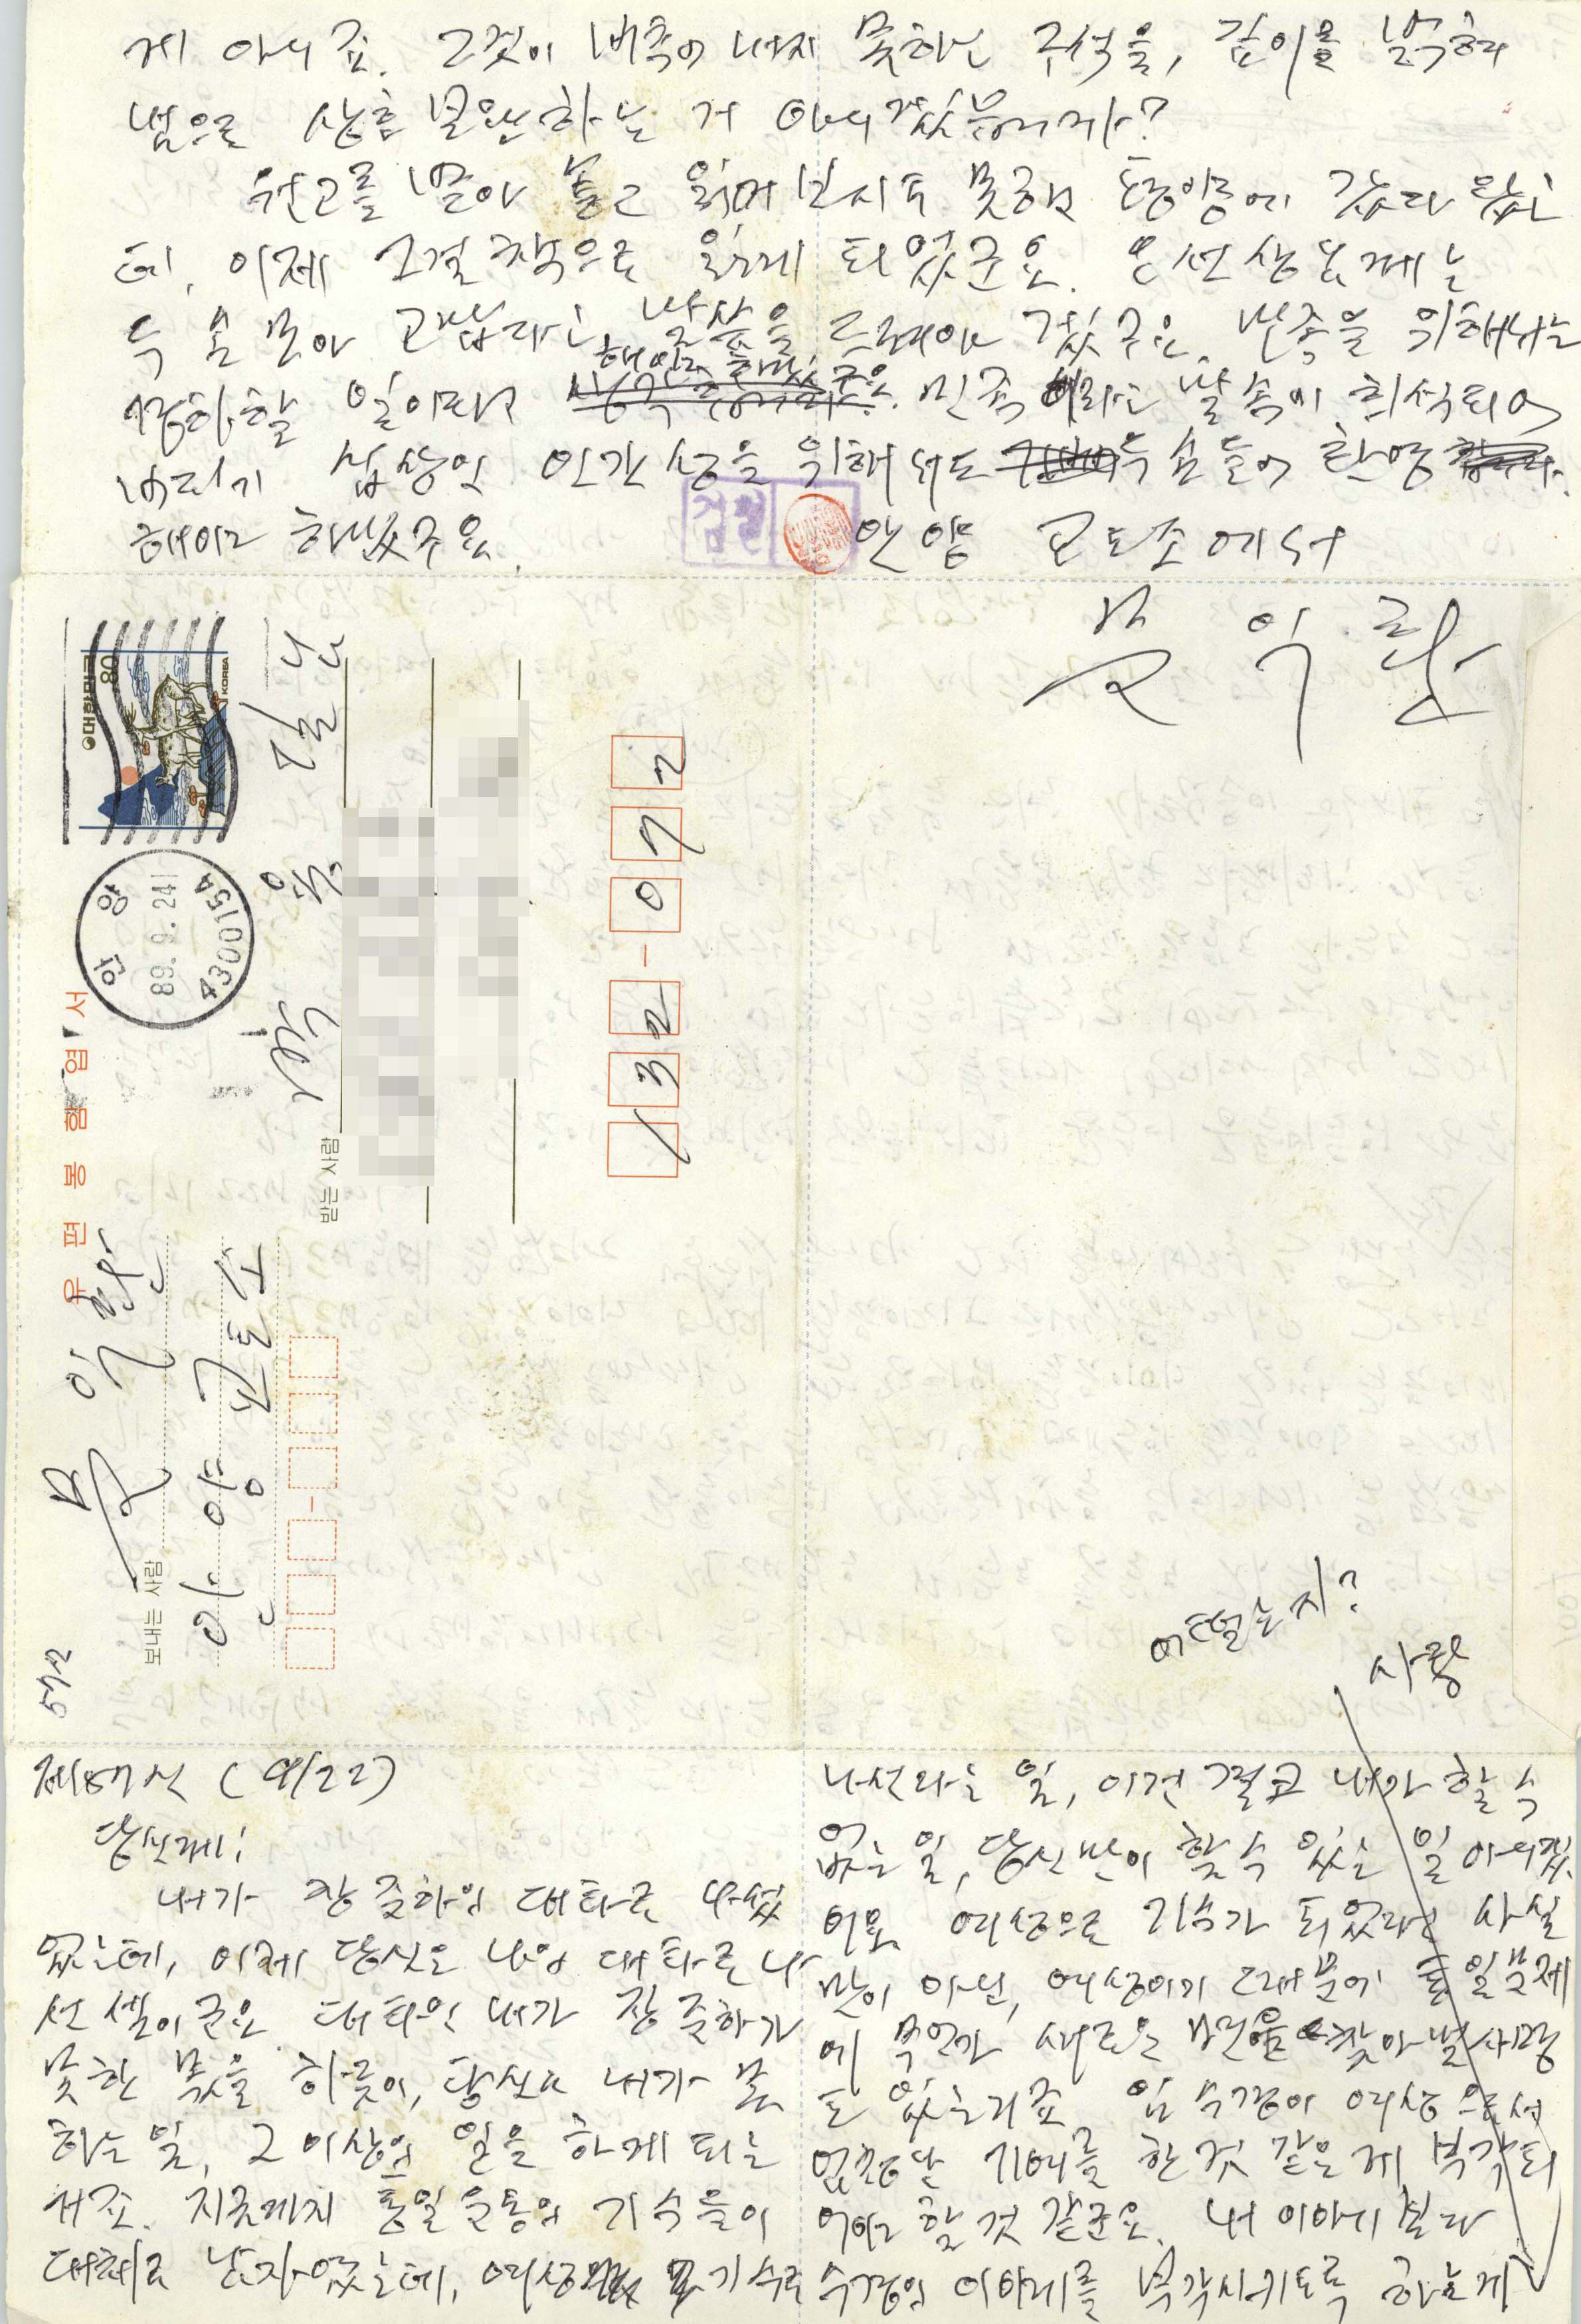 게 아니죠. 그것이 버죽이 내지 못하는 구석을, 깊이를 발굴해
냄으로 상호 보완하는 거 아니겠습니까?
원고를 받아 놓고 읽어 보지도 못하고 평양에 갔다 왔는
데, 이제 그걸 책으로 읽게 되었군요. 선생님께는
두 손 모아 고맙다는 말씀을 드려야 겠군요. 민족을 위해서는
경하할 일이라고 해야 하겠군요. 민족이라는 말 속에 희석되어
버리기 십상인 인간성을 위해서도 두 손 들어 환영
해야 하겠구요.
안양 교도소에서
문 익 환
검열
대한민국 KOREA 80
안양
89. 9. 24
430015A
우편봉함엽서
받는 사람
박 용 길
132-072
보내는 사람
문 익환
안양 교도소
57신
제57신 (9/22)
당신께;
내가 장준하의 대타로 나섰
었는데, 이제 당신은 나의 대타로 나
선 셈이군요. 대타인 내가 장준하가
못한 몫을 하듯이, 당신도 내가 못
하는 일, 그 이상의 일을 하게 되는
거죠. 지금까지 통일운동의 기수들이
대체로 남자였는데, 여성 기수로
나선다는 일, 이건 결코 내가 할 수
없는 일, 당신만이 할 수 있는 일 아니겠
어요. 여성으로 기수가 되었다는 사실
만이 아닌, 여성이기 때문에 통일문제
에 무언가 새로운 면을 찾아낼 사명
도 있는 거죠. 임수경이 여성으로서
엄청난 기여를 한 것 같은 게 부각되
어야 할 것 같군요. 내 이야기보다
수경의 이야기를 부각시키도록 하는 게
어떨는지?
사랑